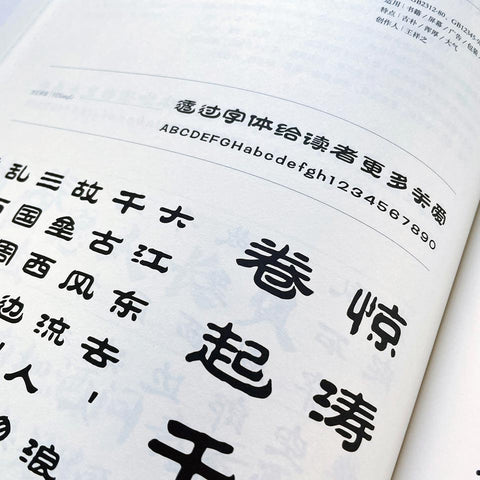 GB2312-80、GB12345-9
适用：书籍/屏幕/广告/包装
特点：古朴/浑厚/大气
创作人：王祥之
透过字体给读者更多
ABCDEFGHabcdefgh1234567890
惊涛
卷起千
大江东去，浪
千古风流人物
故垒西边
三国周
乱